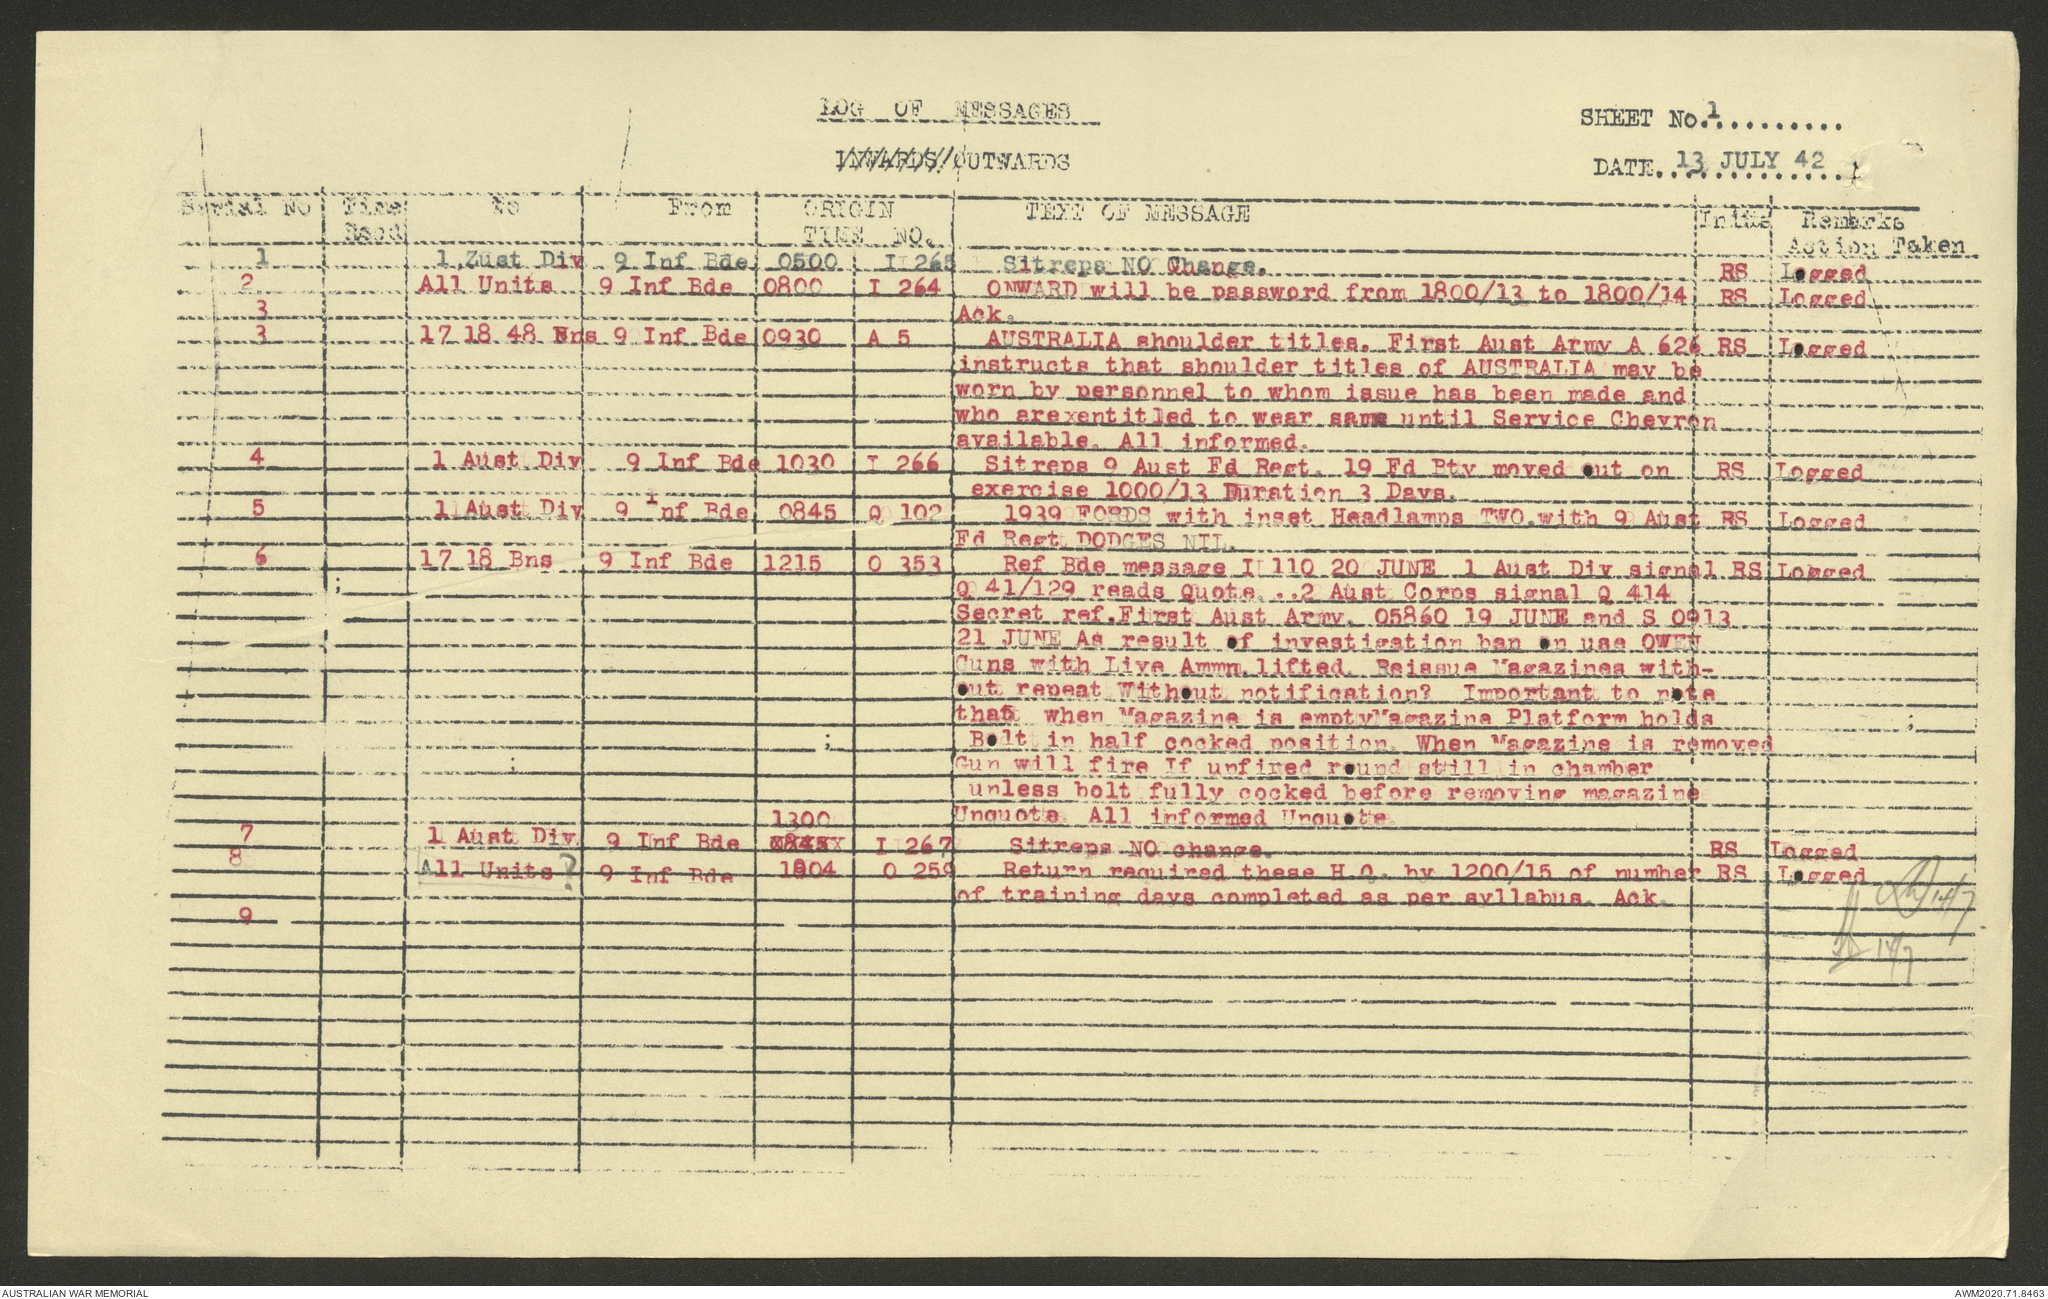 LOG OF MESSAGES
SHEET No.1..........
INWARDS/OUTWARDS
DATE. 13 JULY 42
Serial No Time To From ORIGIN TEXT OF MESSAGE Initls Remarks
Recd TIME NO. Action Taken
1 1 Zust Div 9 Inf Bde 0500 I 265 Sitreps NO Change. RS Logged
2 All Units 9 Inf Bde 0800 I 264 ONWARD will be password from 1800/13 to 1800/14 RS Logged
3 Ack.
3 17 18 48 Bns 9 Inf Bde 0930 A 5 AUSTRALIA shoulder titles. First Aust Army A 626 RS Logged
instructs that shoulder titles of AUSTRALIA may be
worn by personnel to whom issue has been made and
who arexentitled to wear same until Service Chevron
available. All informed.
4 1 Aust Div 9 Inf Bde 1030 I 266 Sitreps 9 Aust Fd Regt. 19 Fd Bty moved out on RS Logged
exercise 1000/13 Duration 3 Days.
5 1 Aust Div 9 Inf Bde 0845 Q 102 1939 FORDS with inset Headlamps TWO.with 9 Aust RS Logged
Fd Regt DODGES NIL.
6 17 18 Bns 9 Inf Bde 1215 O 353 Ref Bde message I 110 20 JUNE 1 Aust Div signal RS Logged
Q 41/129 reads Quote ..2 Aust Corps signal Q 414
Secret ref.First Aust Army. O5860 19 JUNE and S 0913
21 JUNE As result of investigation ban on use OWEN
Guns with Live Ammn lifted. Reissue Magazines with-
out repeat Without notification? Important to note
that when Magazine is emptyMagazine Platform holds
Bolt in half cocked position. When Magazine is removed
Gun will fire If unfired round still in chamber
unless bolt fully cocked before removing magazine
1300 Unquote. All informed Unquote.
7 1 Aust Div 9 Inf Bde I 267 Sitreps NO change. RS Logged
8 All Units ? 9 Inf Bde 1804 O 259 Return required these H.Q. by 1200/15 of number RS Logged
of training days completed as per syllabus. Ack.
9 14/7
14/7
AUSTRALIAN WAR MEMORIAL
AWM2020.71.8463